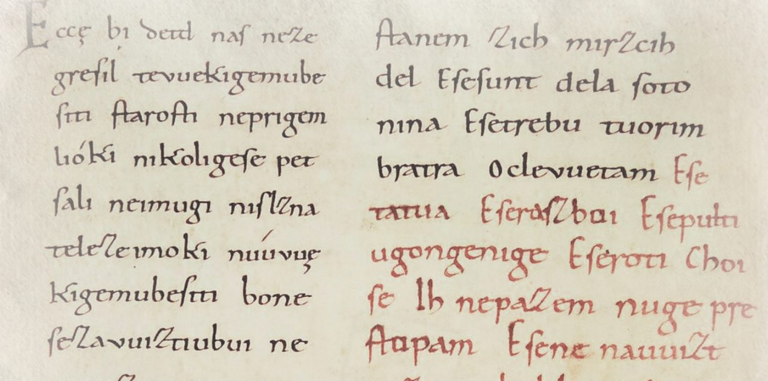 Eccę bi detd naſ neze
greſil tevuekigemube
ſiti ſtaroſti neprigem
lióki nikoligeſe pet
ſali neimugi niſlzna
telezeimoki núuvuę
kigemubeſiti bone
ſezavuiztiubui ne
ſtanem zich mirzcih
del Eſeſunt dela ſoto
nina Eſetrebu tuorim
bratra Oclevuetam Eſe
tatua Eſeraſzboi Eſepulti
ugongenige Eſeroti Choi
ſe Ih nepazem nuge pre
ſtopam Eſene nauuizt